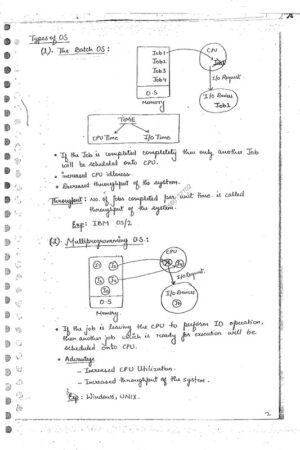 Types of OS
(1). The Batch OS:
Job1
Job2
Job3
Job4
O.S
Memory
CPU
Job1
I/o Request
I/o Devices
Job1
TIME
CPU Time
I/o Time
• If the Job is completed completely then only another Job
will be scheduled onto CPU.
• increased CPU idleness.
• Decreased throughput of the system.
Throughput: No. of Jobs completed per unit time is called
throughput of the system.
Exp: IBM OS/2
(2). Multiprogramming O.S:
O.S
Memory.
CPU
I/o Request.
I/o Devices
• If the job is leaving the CPU to perform IO operation,
then another job which is ready for execution will be
scheduled onto CPU.
• Advantage
- Increased CPU Utilization.
- Increased throughput of the system.
Exp: Windows, UNIX.
2